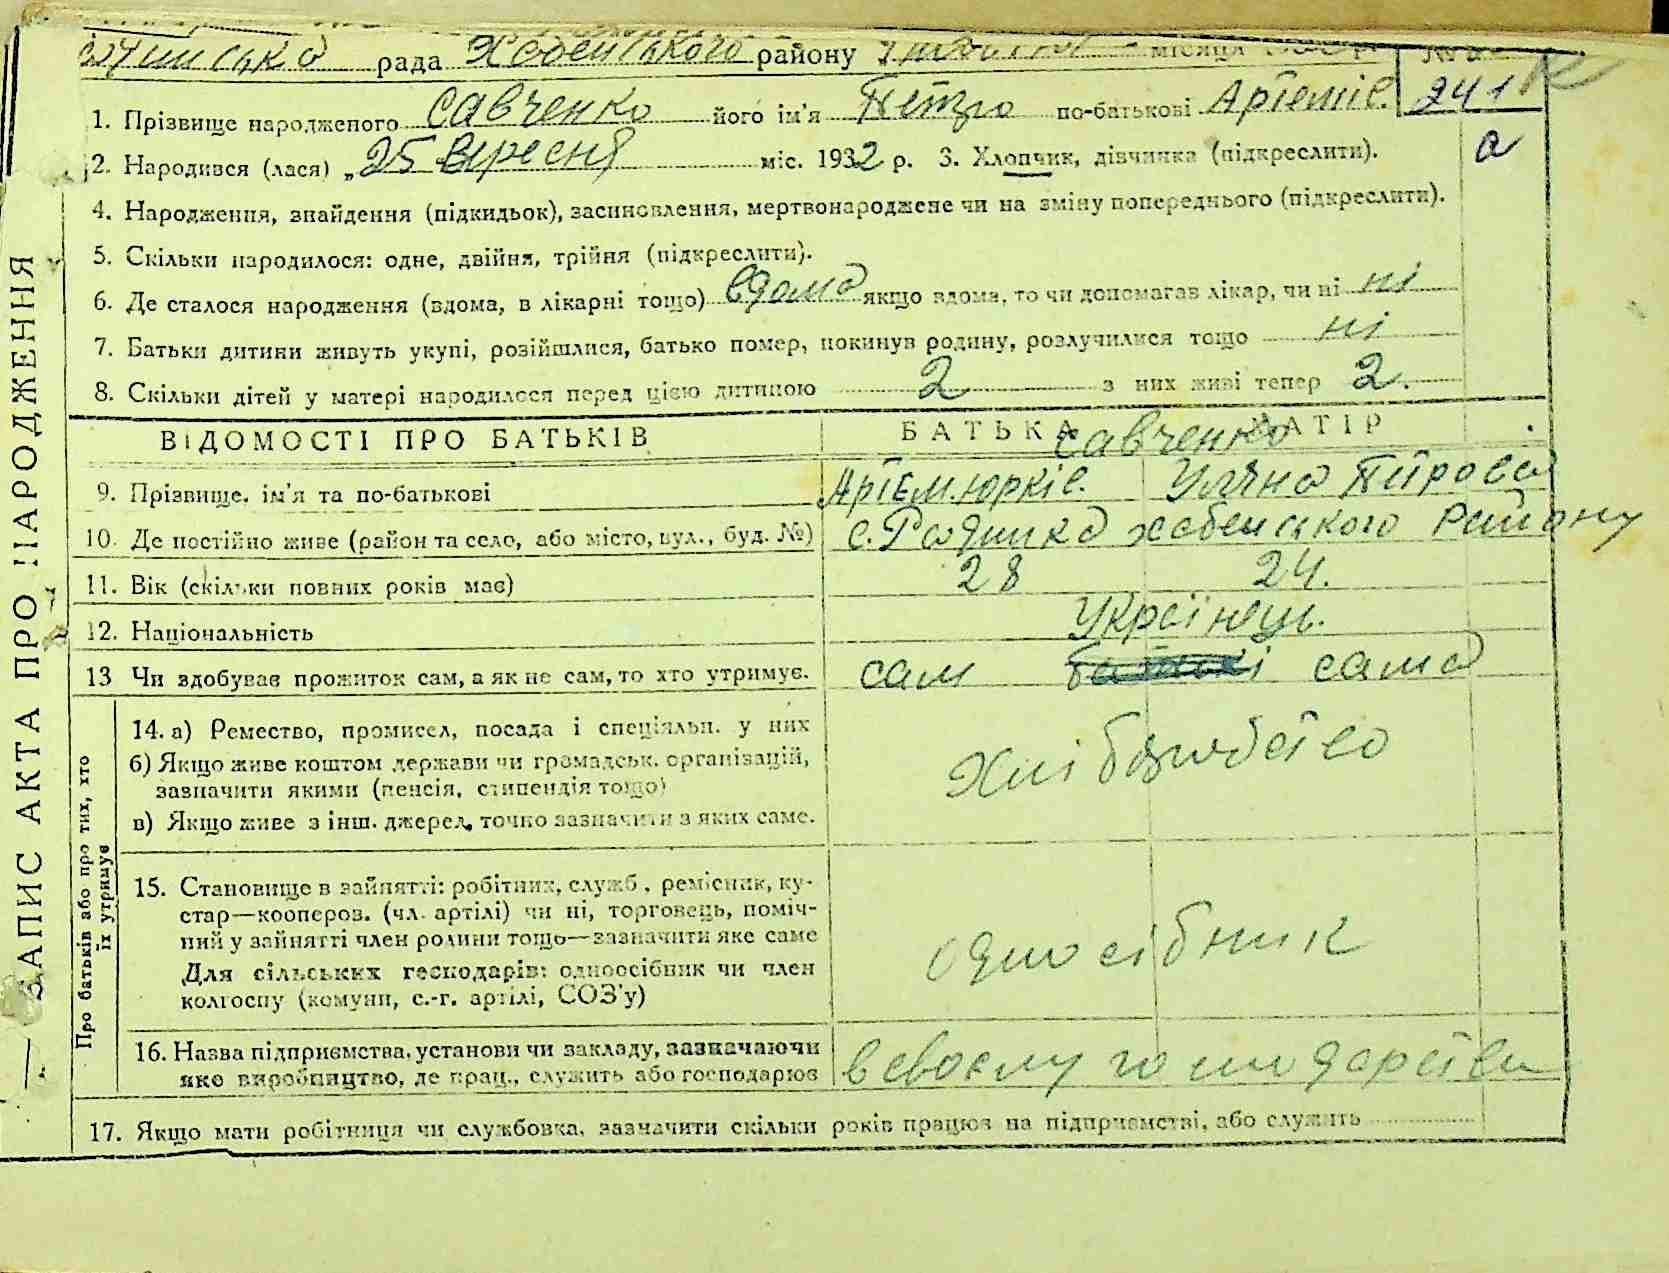 рада Хабенського району місяця
241
1. Прізвище народженого Савченко його ім'я Петро по-батькові Артемів.
2. Народився (лася) „25 Вересня міс. 1932 р. 3. Хлопчик, дівчинка (підкреслити).
а
4. Народження, знайдення (підкидьок), засиновлення, мертвонароджене чи на зміну попереднього (підкреслити).
5. Скільки народилося: одне, двійня, трійня (підкреслити).
6. Де сталося народження (вдома, в лікарні тощо) вдома якщо вдома, то чи допомагав лікар, чи ні ні
7. Батьки дитини живуть укупі, розійшлися, батько помер, покинув родину, розлучилися тощо ні
8. Скільки дітей у матері народилося перед цією дитиною 2 з них живі тепер 2.
ЗАПИС АКТА ПРО НАРОДЖЕННЯ
ВІДОМОСТІ ПРО БАТЬКІВ БАТЬКА МАТІР
Савченко
9. Прізвище, ім'я та по-батькові Артем. Юрків. Уляна Петрова
10. Де постійно живе (район та село, або місто, вул., буд. №) с. Хабенського Району
11. Вік (скільки повних років має) 28 24.
12. Національність Українець.
13 Чи здобуває прожиток сам, а як не сам, то хто утримує. сам сама
Про батьків або про тих, хто
їх утримує
14. а) Ремество, промисел, посада і спеціяльн. у них
б) Якщо живе коштом держави чи громадськ. організацій,
зазначити якими (пенсія, стипендія тощо)
в) Якщо живе з інш. джерел, точно зазначити з яких саме.
Хліборобство
15. Становище в зайнятті: робітник, служб., ремісник, ку-
стар—коопероз. (чл. артілі) чи ні, торговець, поміч-
ний у зайнятті член родини тощо—зазначити яке саме
Для сільських господарів: одноосібник чи член
колгоспу (комуни, с.-г. артілі, СОЗ'у)
односібник
16. Назва підприємства, установи чи закладу, зазначаючи
яке виробництво, де прац., служить або господарює
в своєму господарстві
17. Якщо мати робітниця чи службовка, зазначити скільки років працює на підприємстві, або служить